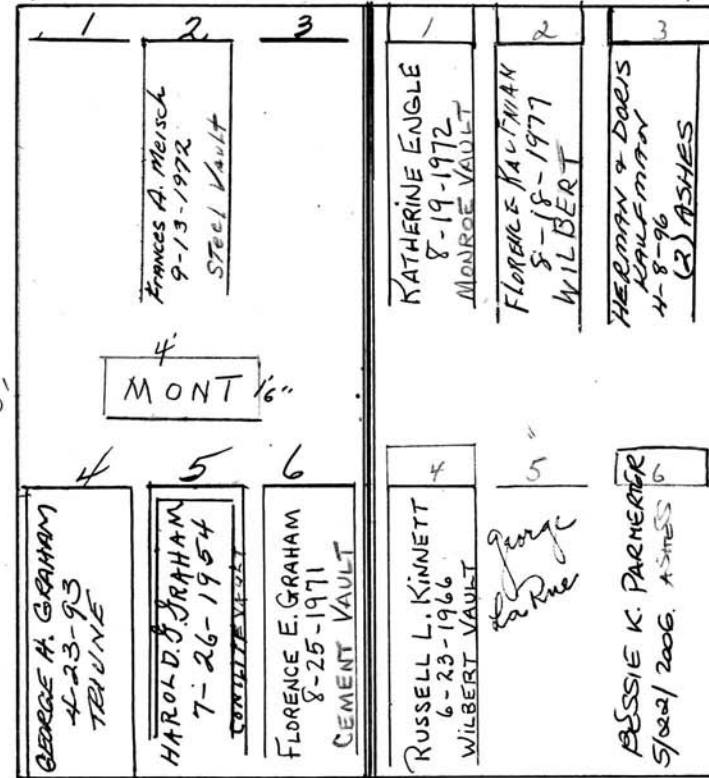 1
2
3
FRANCES A. Meisch
9-13-1972
STEEL VAULT
4'
MONT 1'6"
4
5
6
GEORGE H. GRAHAM
4-23-93
TRIUNE
HAROLD. J. GRAHAM
7-26-1954
VAULT
FLORENCE E. GRAHAM
8-25-1971
CEMENT VAULT
1
2
3
KATHERINE ENGLE
8-19-1972
MONROE VAULT
FLORENCE KAUFMAN
8-18-1977
WILBERT
HERMAN & DORIS
KAUFMAN
4-8-96
(2) ASHES
4
5
6
RUSSELL L. KINNETT
6-23-1966
WILBERT VAULT
George
La Rue
BESSIE K. PARMERTER
2006. ASHES